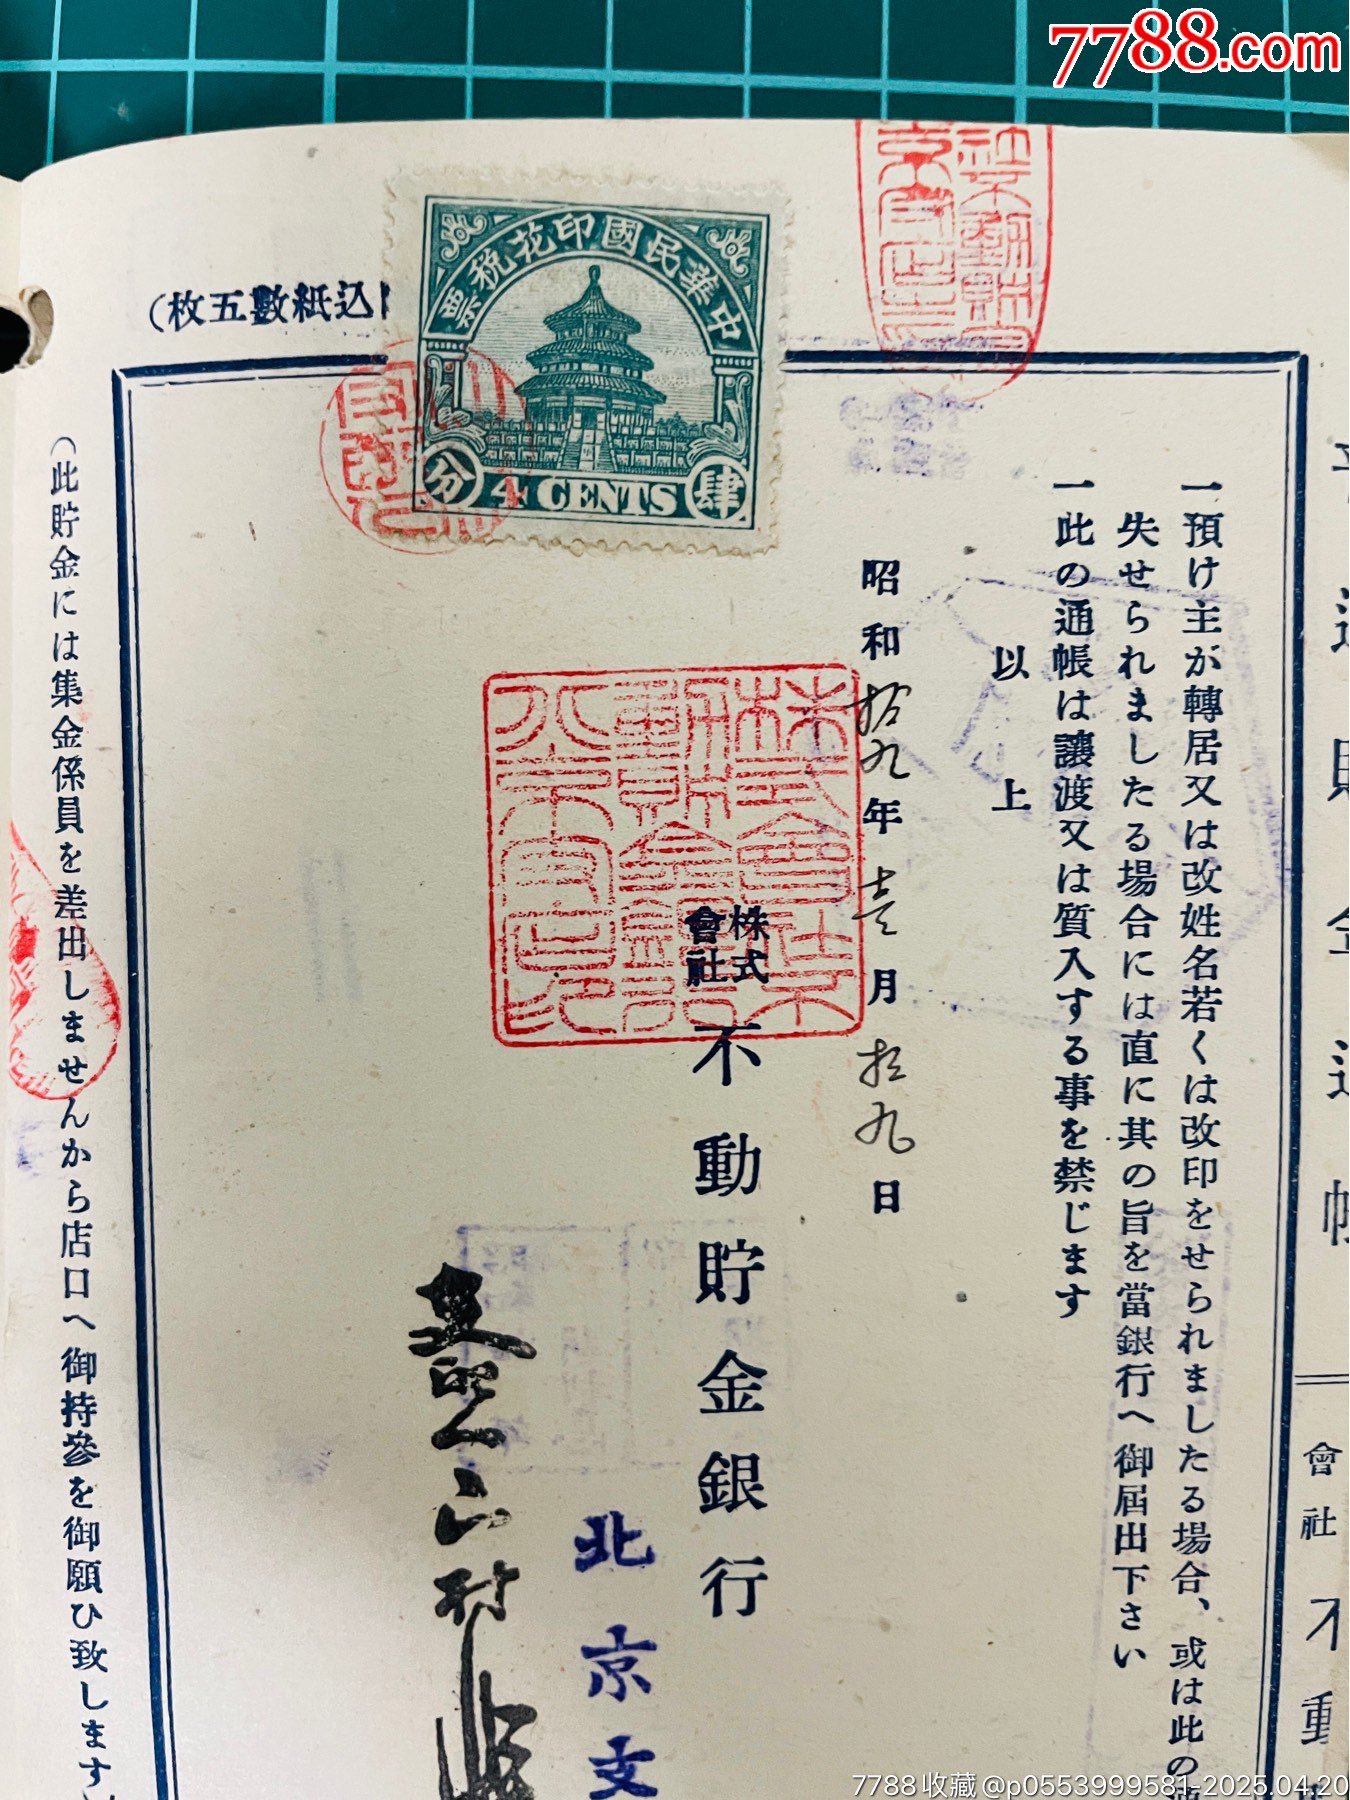 7788.com
中華民國印花税票
分
4 CENTS
肆
込紙數五枚)
一預け主が轉居又は改姓名若くは改印をせられましたる場合、或は此の
失せられましたる場合には直に其の旨を當銀行へ御屆出下さい
一此の通帳は讓渡又は質入する事を禁じます
以上
昭和拾九年壹月拾九日
株式會社
不動貯金銀行
北京支
(此貯金には集金係員を差出しませんから店口へ御持參を御願ひ致します
會社不動
7788收藏@p0553999581-2025.04.20